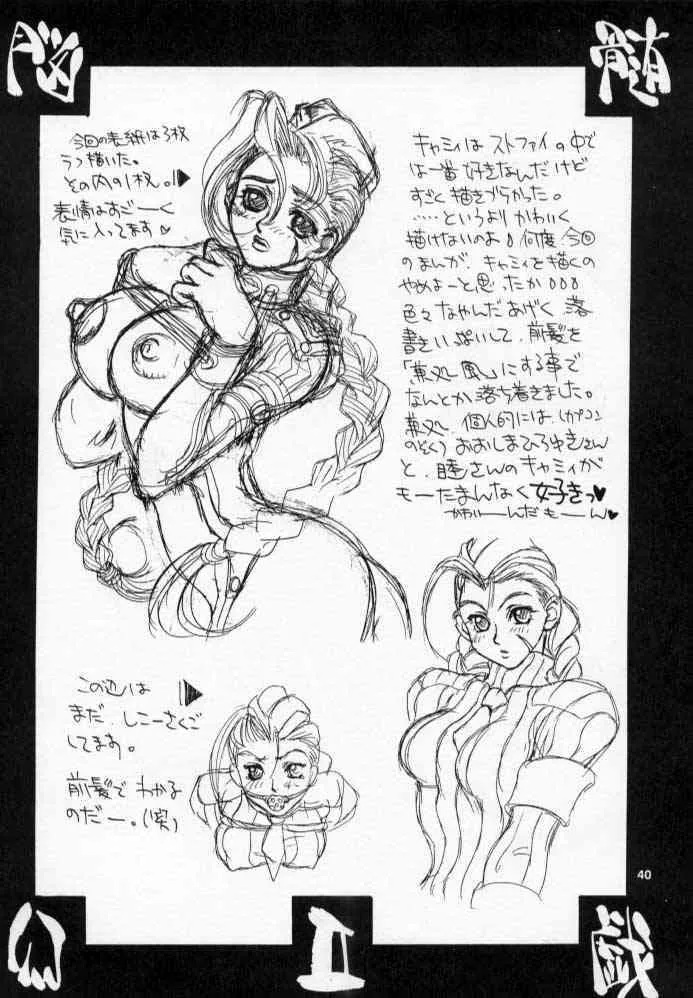 脳
髄
今回の表紙は3枚
うつ描いた。
その内の1枚。
表情はすごーーく
気に入ってます♡
キャミィは ストファイの中で
は一番 好きなんだけど
すごく 描きづらかった。
……というより かわいく
描けないのよ 何度、今回
のまんが、キャミィを描くの
やめよーと思ったか
色々 なやんだあげく 落
書きいっぱいして、前髪を
風」にする事で
なんとか 落ち着きました。
個人的には、(カプコン
のぞく) おおしまひろゆきさん
と、睦さんのキャミィが
もーたまんなく 好きっ♥
かわいーんだもーん♥
この辺は
まだ、しこーさくご
してます。
前髪で わかる
のだー。(笑)
40
心
工
戯